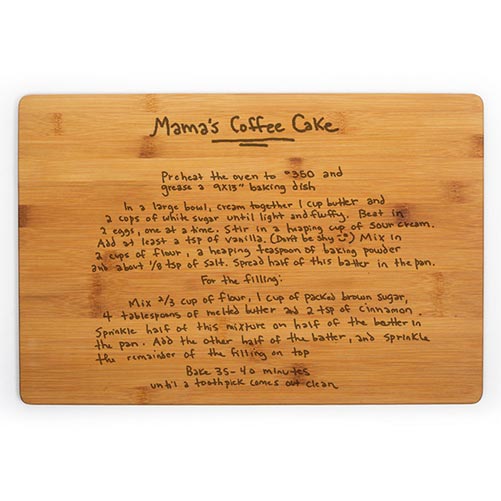 Mama's Coffee Cake
Preheat the oven to °350 and
grease a 9x13" baking dish
In a large bowl, cream together 1 cup butter and
2 cups of white sugar until light and fluffy. Beat in
2 eggs, one at a time. Stir in a heaping cup of sour cream.
Add at least a tsp of vanilla. (Don't be shy :)) Mix in
2 cups of flour, a heaping teaspoon of baking powder
and about 1/8 tsp of salt. Spread half of this batter in the pan.
For the filling:
Mix 2/3 cup of flour, 1 cup of packed brown sugar,
4 tablespoons of melted butter and 2 tsp of cinnamon.
Sprinkle half of this mixture on half of the batter in
the pan. Add the other half of the batter, and sprinkle
the remainder of the filling on top
Bake 35-40 minutes
until a toothpick comes out clean